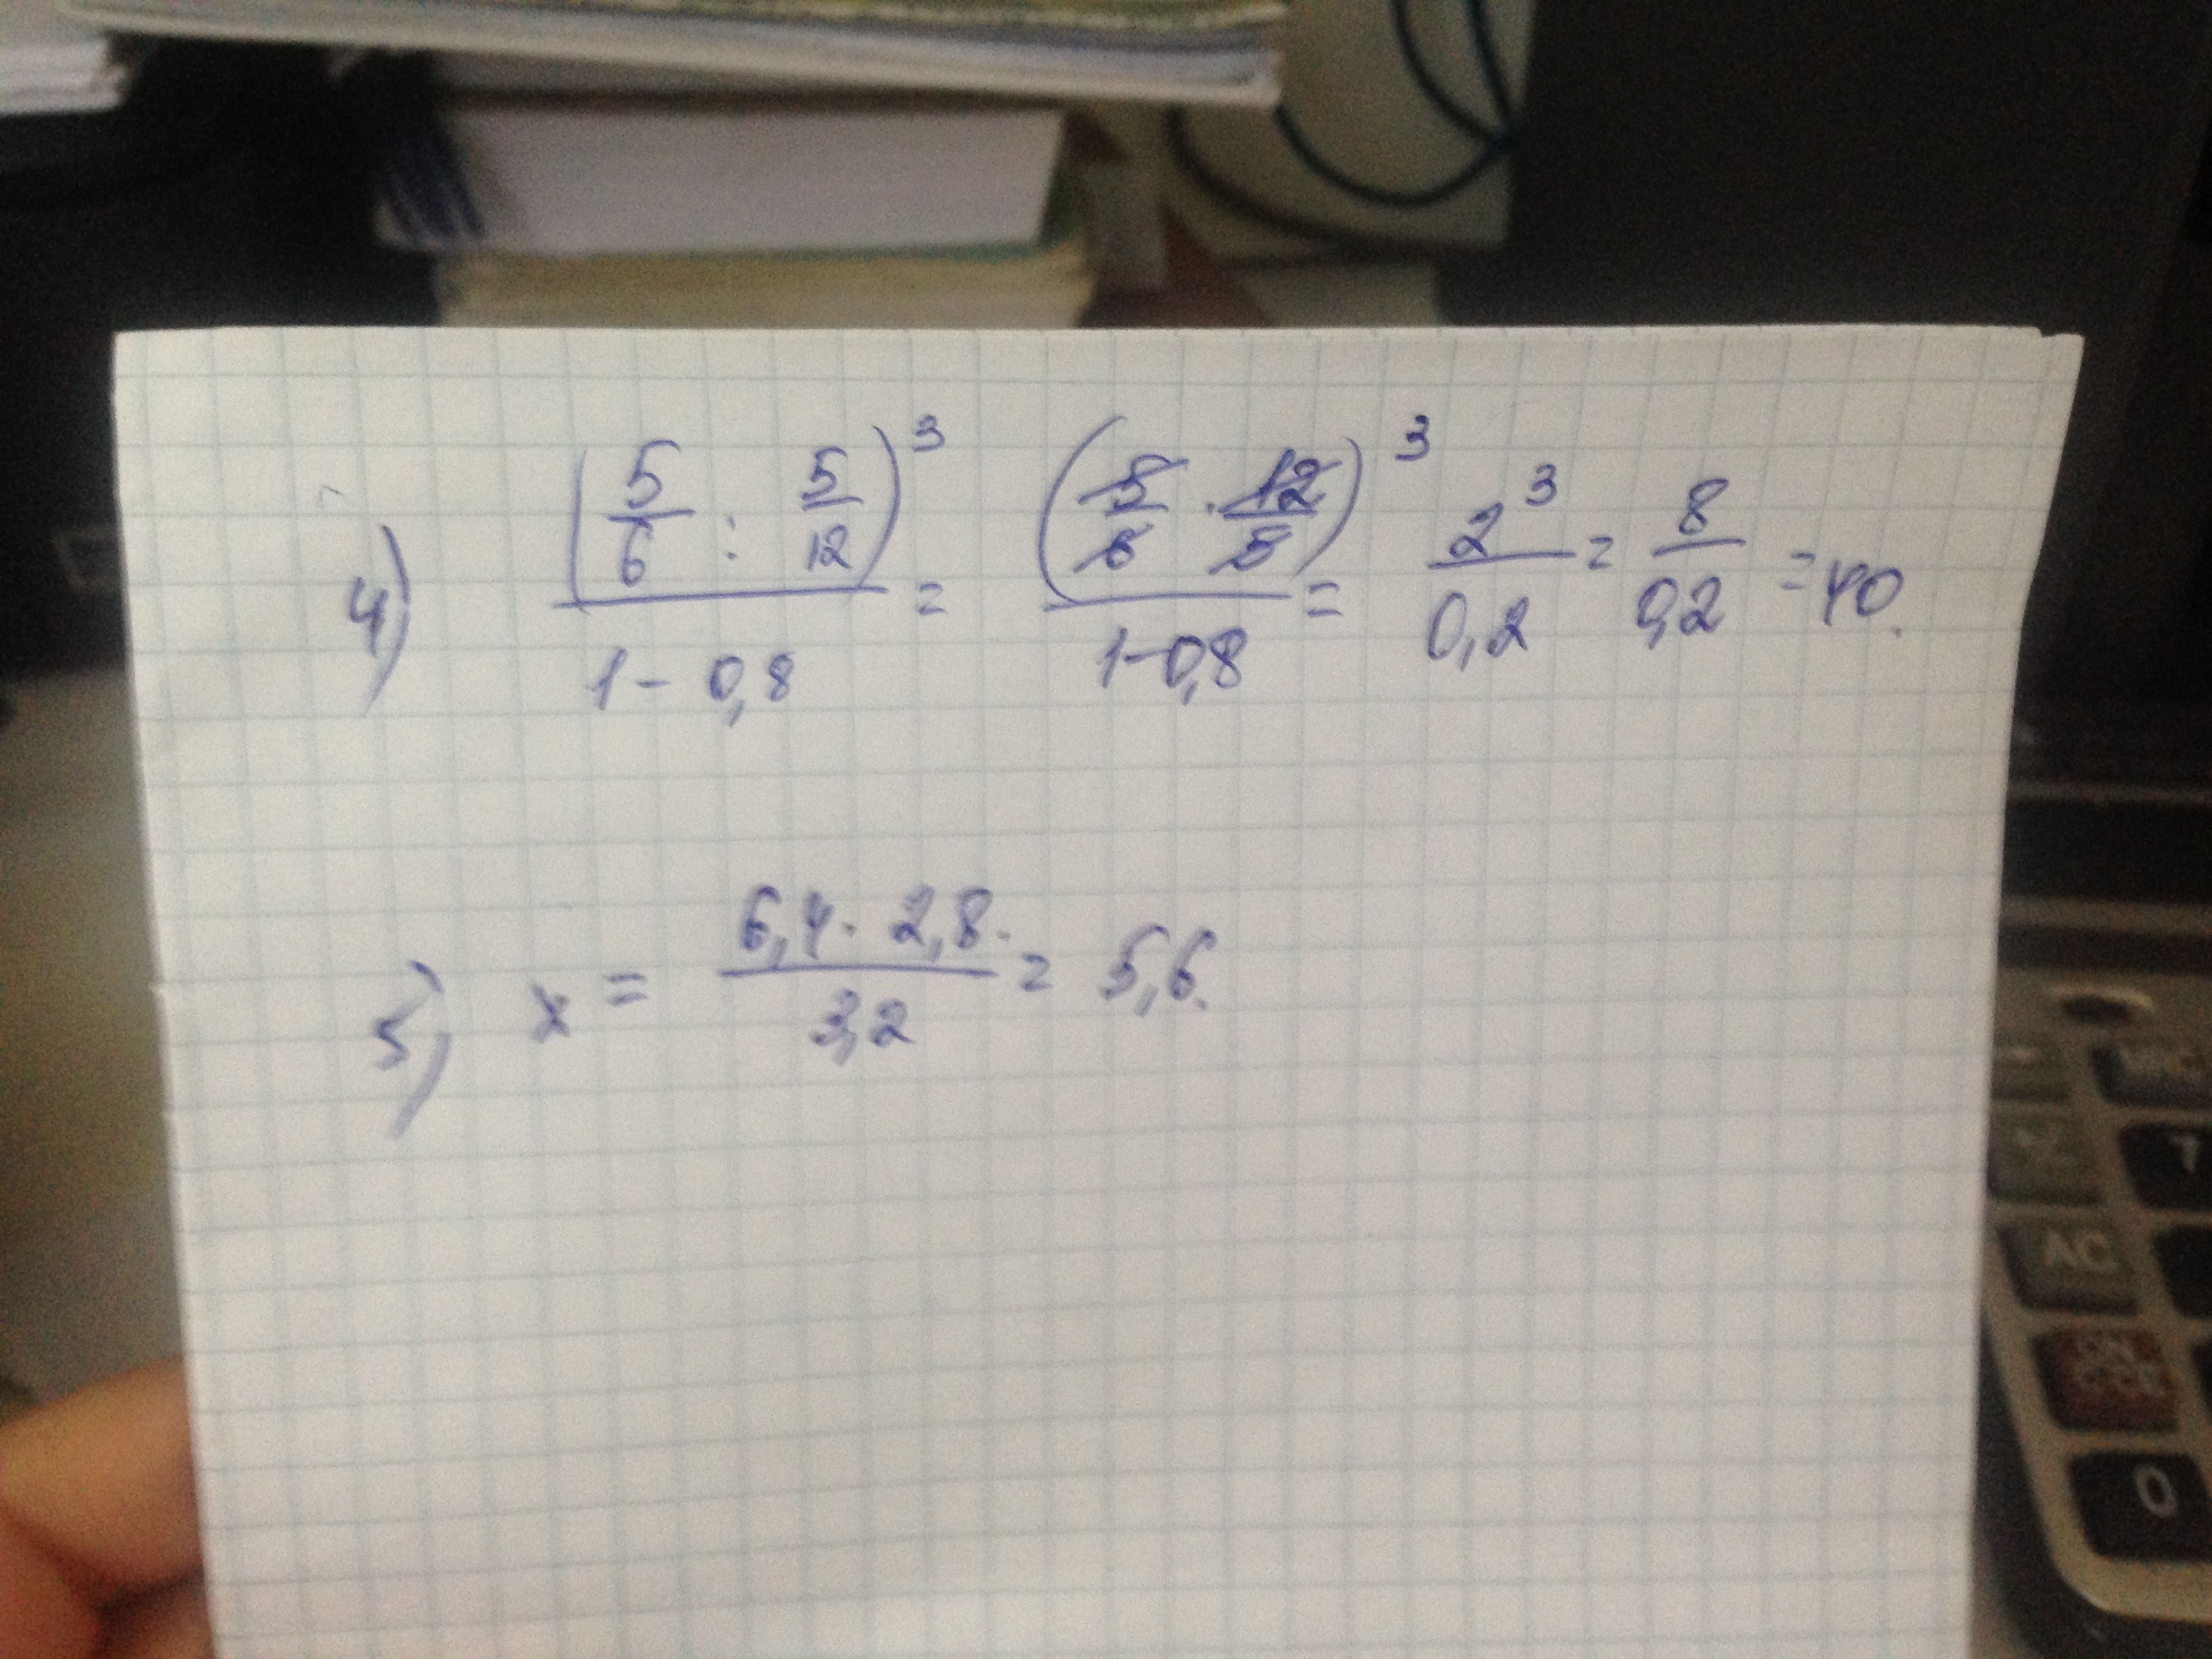 4) (5/6 : 5/12)^3 / (1 - 0,8) = (5/6 · 12/5)^3 / (1-0,8) = 2^3 / 0,2 = 8 / 0,2 = 40.
5) x = 6,4 · 2,8 / 3,2 = 5,6.
AC
0